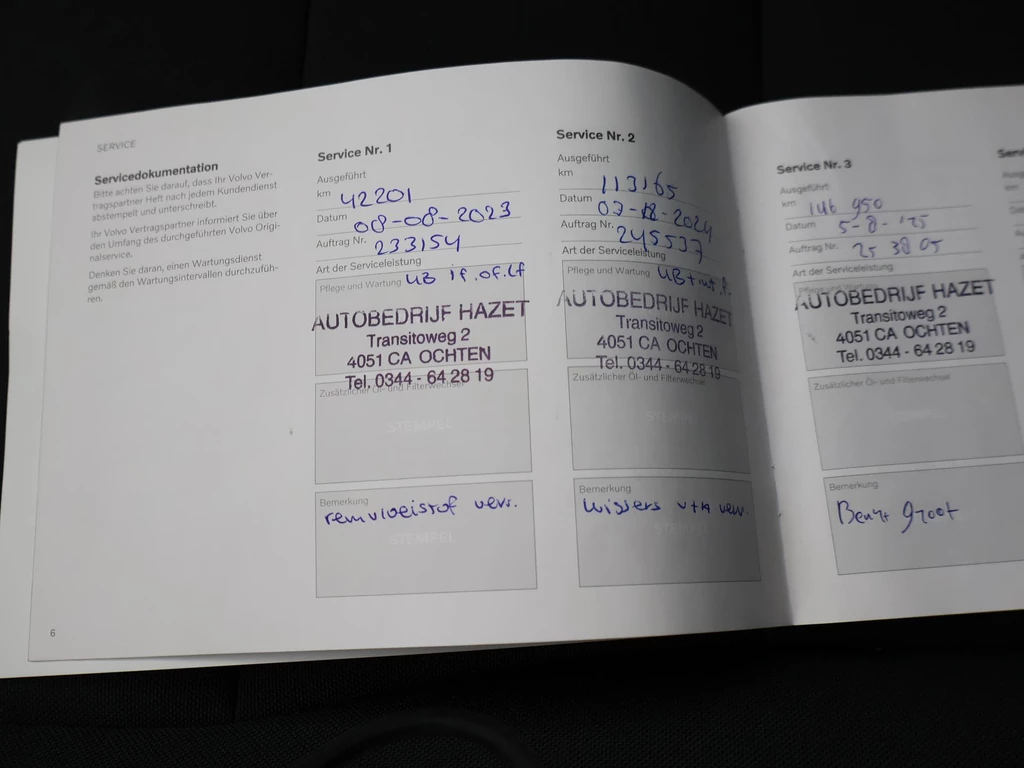 SERVICE
Servicedokumentation
Bitte achten Sie darauf, dass Ihr Volvo Ver-
tragspartner Heft nach jedem Kundendienst
abstempelt und unterschreibt.
Ihr Volvo Vertragspartner informiert Sie über
den Umfang des durchgeführten Volvo Origi-
nalservice.
Denken Sie daran, einen Wartungsdienst
gemäß den Wartungsintervallen durchzufüh-
ren.
6
Service Nr. 1
Ausgeführt
km 42201
Datum 08-08-2023
Auftrag Nr. 233154
Art der Serviceleistung
Pflege und Wartung UB if.of.Lf
AUTOBEDRIJF HAZET
Transitoweg 2
4051 CA OCHTEN
Tel. 0344 - 64 28 19
Zusätzlicher Öl- und Filterwechsel
STEMPEL
Bemerkung
remvloeistof verv.
STEMPEL
Service Nr. 2
Ausgeführt
km 113165
Datum
Auftrag Nr. 245537
Art der Serviceleistung
Pflege und Wartung
AUTOBEDRIJF HAZET
Transitoweg 2
4051 CA OCHTEN
Tel. 0344 - 64 28 19
Zusätzlicher Öl- und Filterwechsel
STEMPEL
Bemerkung
wissers v+A verv.
STEMPEL
Service Nr. 3
Ausgeführt
km 146 950
Datum 5-8-'25
Auftrag Nr. 25 38 05
Art der Serviceleistung
Pflege und Wartung
AUTOBEDRIJF HAZET
Transitoweg 2
4051 CA OCHTEN
Tel. 0344 - 64 28 19
Zusätzlicher Öl- und Filterwechsel
Bemerkung
Beurt groot